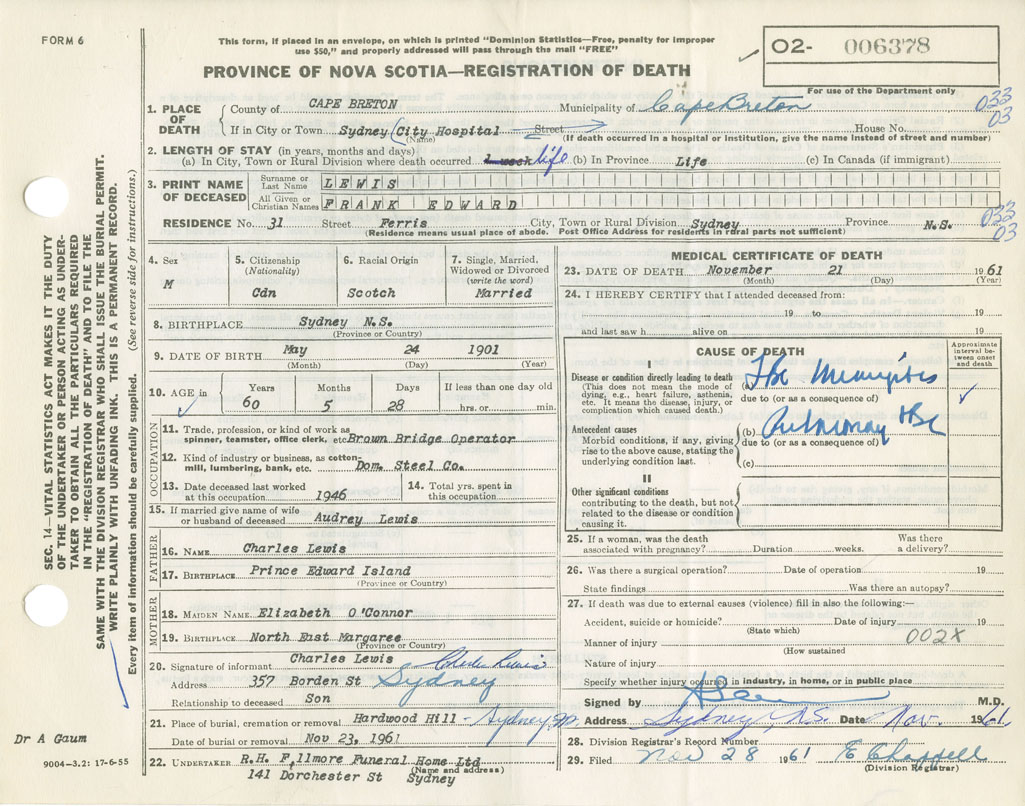 FORM 6
This form, if placed in an envelope, on which is printed "Dominion Statistics—Free, penalty for improper
use $50," and properly addressed will pass through the mail "FREE"
PROVINCE OF NOVA SCOTIA—REGISTRATION OF DEATH
02- 006378
For use of the Department only
033
03
1. PLACE OF DEATH
County of CAPE BRETON Municipality of Cape Breton
If in City or Town Sydney (City Hospital Street House No.
(Name) (If death occurred in a hospital or institution, give the name instead of street and number)
2. LENGTH OF STAY (in years, months and days)
(a) In City, Town or Rural Division where death occurred 1 week life (b) In Province Life (c) In Canada (if immigrant)
3. PRINT NAME OF DECEASED
Surname or Last Name LEWIS
All Given or Christian Names FRANK EDWARD
RESIDENCE No. 31 Street Ferris City, Town or Rural Division Sydney Province N.S.
(Residence means usual place of abode. Post Office Address for residents in rural parts not sufficient)
033
03
4. Sex
M
5. Citizenship
(Nationality)
Cdn
6. Racial Origin
Scotch
7. Single, Married,
Widowed or Divorced
(write the word)
Married
8. BIRTHPLACE Sydney N.S.
(Province or Country)
9. DATE OF BIRTH May 24 1901
(Month) (Day) (Year)
10. AGE in
Years Months Days If less than one day old
60 5 28 hrs. or min.
OCCUPATION
11. Trade, profession, or kind of work as
spinner, teamster, office clerk, etc. Brown Bridge Operator
12. Kind of industry or business, as cotton-
mill, lumbering, bank, etc. Dom. Steel Co.
13. Date deceased last worked
at this occupation 1946
14. Total yrs. spent in
this occupation
15. If married give name of wife
or husband of deceased Audrey Lewis
FATHER
16. NAME Charles Lewis
17. BIRTHPLACE Prince Edward Island
(Province or Country)
MOTHER
18. MAIDEN NAME Elizabeth O'Connor
19. BIRTHPLACE North East Margaree
(Province or Country)
20. Signature of informant Charles Lewis Charles Lewis
Address 357 Borden St Sydney
Relationship to deceased Son
21. Place of burial, cremation or removal Hardwood Hill - Sydney
Date of burial or removal Nov 23, 1961
22. UNDERTAKER R.H. Fillmore Funeral Home Ltd
(Name and address)
141 Dorchester St Sydney
MEDICAL CERTIFICATE OF DEATH
23. DATE OF DEATH November 21 1961
(Month) (Day) (Year)
24. I HEREBY CERTIFY that I attended deceased from:
19 to 19
and last saw h alive on 19
CAUSE OF DEATH
Approximate
interval be-
tween onset
and death
I
Disease or condition directly leading to death
(This does not mean the mode of
dying, e.g., heart failure, asthenia,
etc. It means the disease, injury, or
complication which caused death.)
(a) Tbc Meningitis
due to (or as a consequence of)
Antecedent causes
Morbid conditions, if any, giving
rise to the above cause, stating the
underlying condition last.
(b) Pulmonary Tbc
due to (or as a consequence of)
(c)
II
Other significant conditions
contributing to the death, but not
related to the disease or condition
causing it.
25. If a woman, was the death
associated with pregnancy? Duration weeks. Was there
a delivery?
26. Was there a surgical operation? Date of operation 19
State findings Was there an autopsy?
27. If death was due to external causes (violence) fill in also the following:—
Accident, suicide or homicide? Date of injury 19
(State which)
Manner of injury 002X
(How sustained
Nature of injury
Specify whether injury occurred in industry, in home, or in public place
Signed by M.D.
Address Sydney, N.S. Date Nov. 1961
28. Division Registrar's Record Number
29. Filed Nov 28 1961 E Chappell
(Division Registrar)
SEC. 14—VITAL STATISTICS ACT MAKES IT THE DUTY
OF THE UNDERTAKER OR PERSON ACTING AS UNDER-
TAKER TO OBTAIN ALL THE PARTICULARS REQUIRED
IN THE "REGISTRATION OF DEATH" AND TO FILE THE
SAME WITH THE DIVISION REGISTRAR WHO SHALL ISSUE THE BURIAL PERMIT.
WRITE PLAINLY WITH UNFADING INK. THIS IS A PERMANENT RECORD.
Every item of information should be carefully supplied. (See reverse side for instructions.)
Dr A Gaum
9004-3.2: 17-6-55